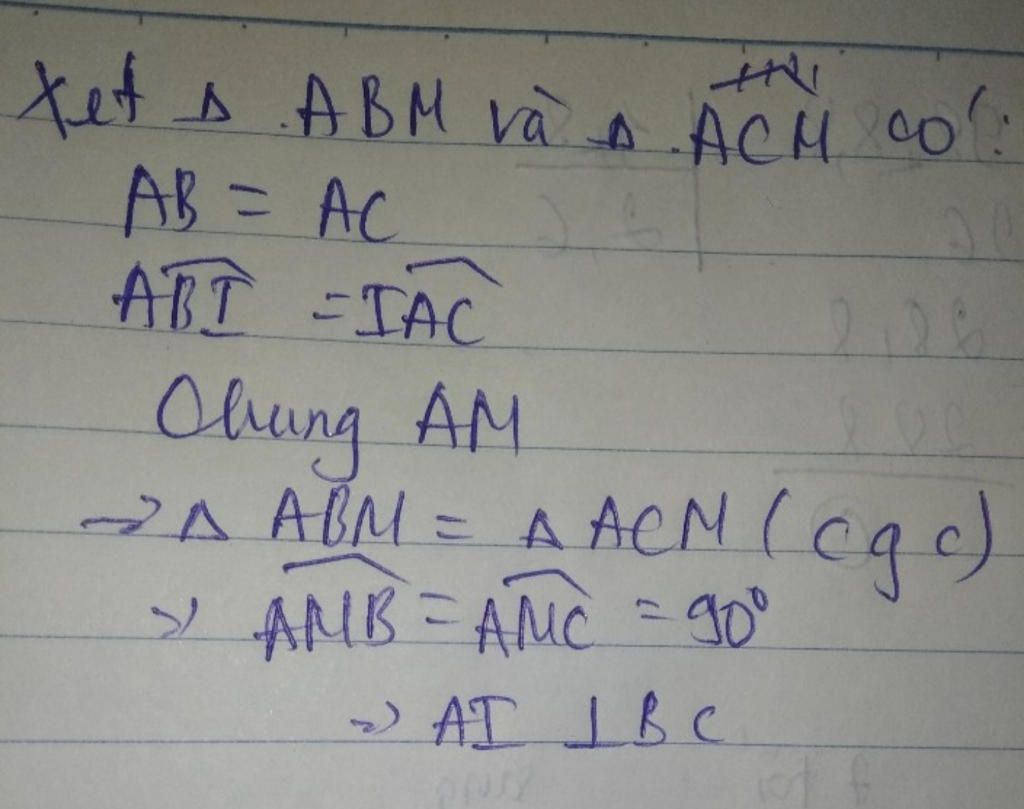 Xet Δ ABM và Δ ACM có:
AB = AC
ABI = IAC
Chung AM
→ Δ ABM = Δ ACM (c g c)
=> AMB = AMC = 90°
=> AI ⊥ BC